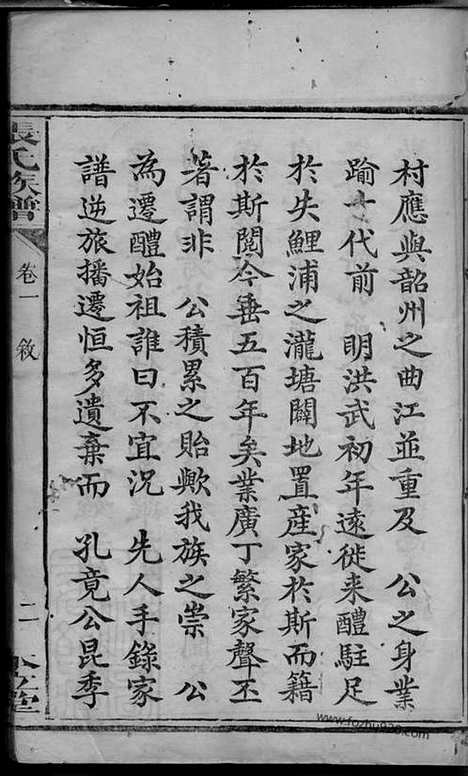 村應與韶州之曲江並重及　公之身業
踰十代前　明洪武初年遠徙来醴駐足
於失鯉浦之瀧塘闢地置産家於斯而籍
於斯閲今垂五百年矣業廣丁繁家聲丕
著謂非　公積累之貽歟我族之崇　公
為遷醴始祖誰曰不宜況　先人手錄家
譜逆旅播遷恒多遺棄而　孔竟公昆季
張氏族譜
卷一　敘
二
www.fozhu920.com